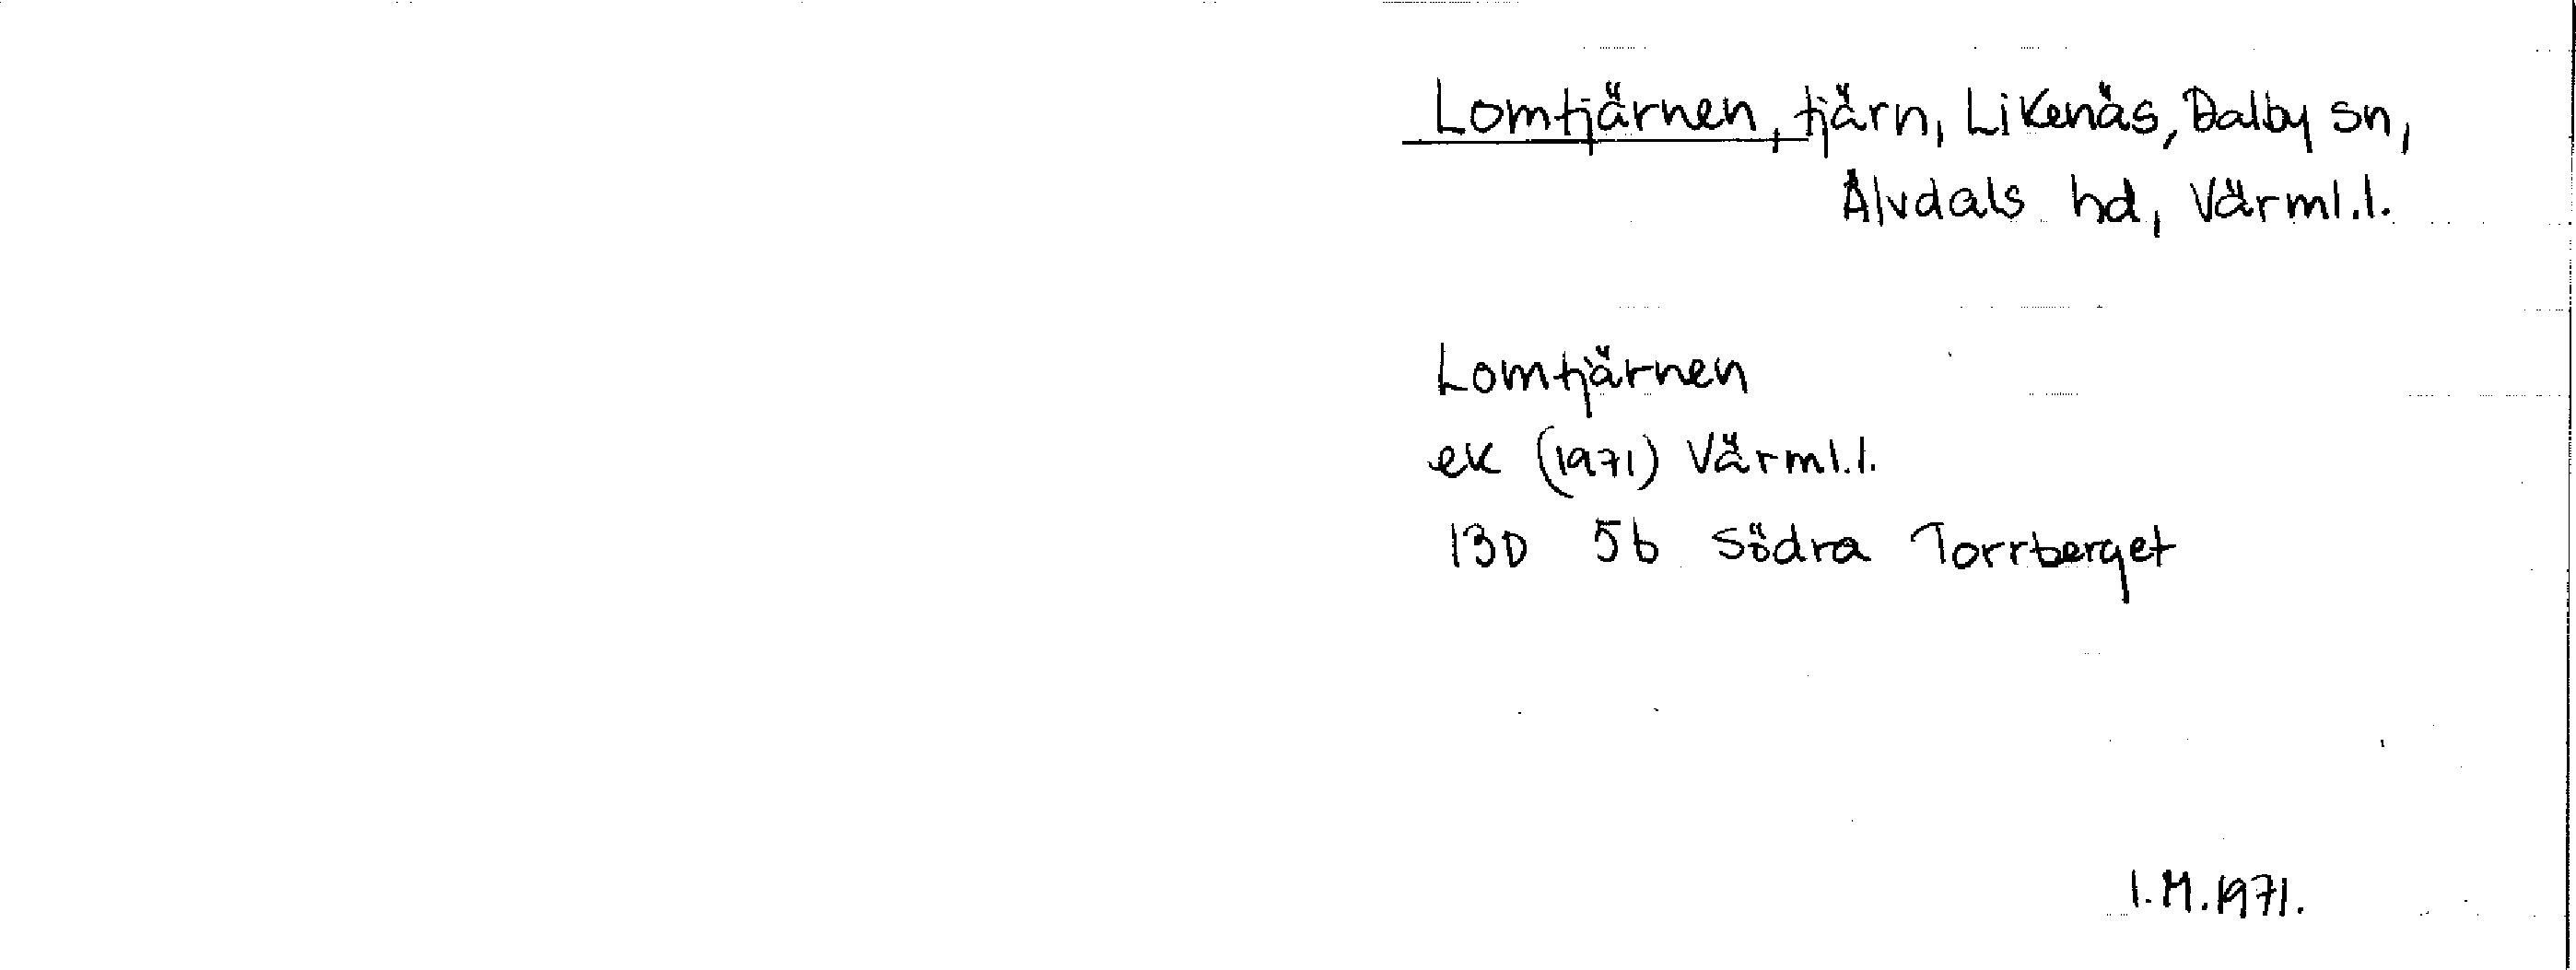 Lomtjärnen, tjärn, Likenäs, Dalby sn,
Älvdals hd, Värml.l.
Lomtjärnen
ek (1971) Värml.l.
13D 5b Södra Torrberget
I.M.1971.